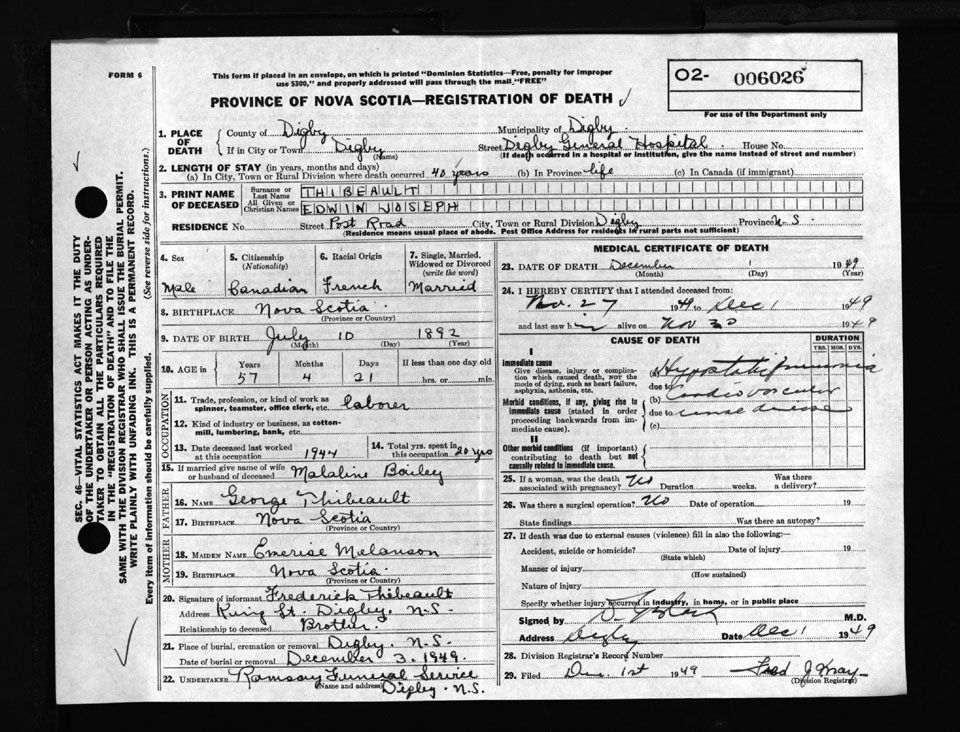 FORM 6
This form if placed in an envelope, on which is printed "Dominion Statistics—Free, penalty for improper
use $300," and properly addressed will pass through the mail "FREE"
O2- 006026
For use of the Department only
PROVINCE OF NOVA SCOTIA—REGISTRATION OF DEATH
SEC. 46—VITAL STATISTICS ACT MAKES IT THE DUTY
OF THE UNDERTAKER OR PERSON ACTING AS UNDER-
TAKER TO OBTAIN ALL THE PARTICULARS REQUIRED
IN THE "REGISTRATION OF DEATH" AND TO FILE THE
SAME WITH THE DIVISION REGISTRAR WHO SHALL ISSUE THE BURIAL PERMIT.
WRITE PLAINLY WITH UNFADING INK. THIS IS A PERMANENT RECORD.
Every item of information should be carefully supplied. (See reverse side for instructions.)
1. PLACE OF DEATH County of Digby Municipality of Digby
If in City or Town Digby (Name) Street Digby General Hospital House No.
(If death occurred in a hospital or institution, give the name instead of street and number)
2. LENGTH OF STAY (in years, months and days)
(a) In City, Town or Rural Division where death occurred 40 years (b) In Province life (c) In Canada (if immigrant)
3. PRINT NAME OF DECEASED Surname or Last Name THIBEAULT
All Given or Christian Names EDWIN JOSEPH
RESIDENCE No. Street Post Road City, Town or Rural Division Digby Province N-S-
(Residence means usual place of abode. Post Office Address for residents in rural parts not sufficient)
4. Sex 5. Citizenship (Nationality) 6. Racial Origin 7. Single, Married, Widowed or Divorced (write the word)
Male Canadian French Married
8. BIRTHPLACE Nova Scotia
(Province or Country)
9. DATE OF BIRTH July 10 1892
(Month) (Day) (Year)
10. AGE in Years Months Days If less than one day old
57 4 21 hrs. or min.
OCCUPATION
11. Trade, profession, or kind of work as spinner, teamster, office clerk, etc. laborer
12. Kind of industry or business, as cotton-mill, lumbering, bank, etc.
13. Date deceased last worked at this occupation 1944 14. Total yrs. spent in this occupation 20 yrs
15. If married give name of wife or husband of deceased Malaline Bailey
FATHER
16. NAME George Thibeault
17. BIRTHPLACE Nova Scotia
(Province or Country)
MOTHER
18. MAIDEN NAME Emerise Melanson
19. BIRTHPLACE Nova Scotia
(Province or Country)
20. Signature of informant Frederick Thibeault
Address King St. Digby. N-S-
Relationship to deceased Brother
21. Place of burial, cremation or removal Digby. N-S-
Date of burial or removal December 3. 1949.
22. UNDERTAKER Ramsay Funeral Service
(Name and address) Digby. N.S.
MEDICAL CERTIFICATE OF DEATH
23. DATE OF DEATH December 1 1949
(Month) (Day) (Year)
24. I HEREBY CERTIFY that I attended deceased from:
Nov. 27 1949 to Dec 1 1949
and last saw him alive on Nov 30 1949
CAUSE OF DEATH DURATION
YRS. MOS. DYS.
I
Immediate cause
Give disease, injury or complication which caused death, NOT the mode of dying, such as heart failure, asphyxia, asthenia, etc.
(a) Hypostatic pneumonia
due to Cardiovascular
Morbid conditions, if any, giving rise to immediate cause (stated in order proceeding backwards from immediate cause).
due to renal disease
(c)
II
Other morbid conditions (if important) contributing to death but not causally related to immediate cause.
25. If a woman, was the death associated with pregnancy? No Duration weeks. Was there a delivery?
26. Was there a surgical operation? No Date of operation 19
State findings Was there an autopsy?
27. If death was due to external causes (violence) fill in also the following:—
Accident, suicide or homicide? Date of injury 19
(State which)
Manner of injury
(How sustained)
Nature of injury
Specify whether injury occurred in industry, in home, or in public place
Signed by M.D.
Address Digby Date Dec 1 1949
28. Division Registrar's Record Number
29. Filed Dec. 1st 1949 Fred J.
(Division Registrar)